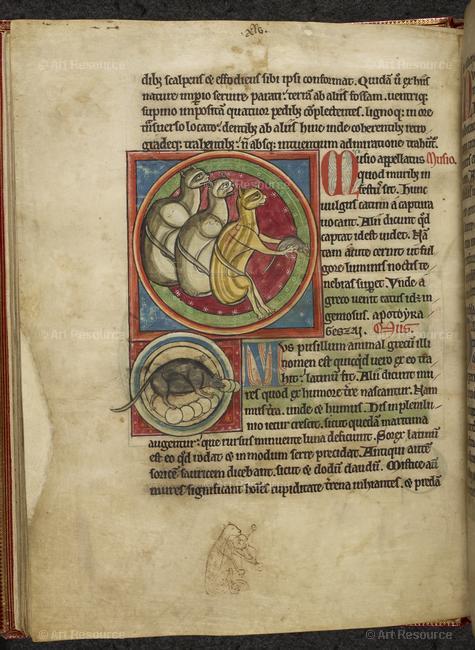 dib; scalpens & effodiens sibi ipsi confortmat. Quidā ū ex hiis
nature impio seruire parati. terrā ab aliis fossam. uentriq;
supino impositā quatuor pedib; cōplectentes. lignoq; in ore
tūsuerso locato. dentib; ab aliis hinc inde coherentib; retro
gradeq; trahentib; n̄ absq; intuentium admiratione trahūt᷑.
Musio appellatus Musio.
quod murib; in
festus sit. Hunc
uulgus catum a captura
uocant. Alii dicunt qd
captat idest uidet. Nā
tam acute cernit ut ful
gore luminis noctis te
nebras supet. Unde a
greco uenit catus id÷ in
geniosus.
Mus.
Mus pusillum animal grecū illi
nomen est quicqd uero ex eo tra
hit᷑. latinū fit. Alii dicunt mu
res quod ex humore tre nascantur. Nam
mus tra. unde & humus. His in pleniluu
nio iecur crescit. sicut quedā maritima
augentur. que rursus minuente luna deficiunt. Sorex latinū
est eo qd rodat & in modum serre precidat. Antiqui autē
soricē sauricem dicebant. sicut & clodū claudū. Mistice aū
mures significant hoies cupiditate trena inhiantes. & predā
© Art Resource
© Art Resource
© Art Resource
© Art Resource